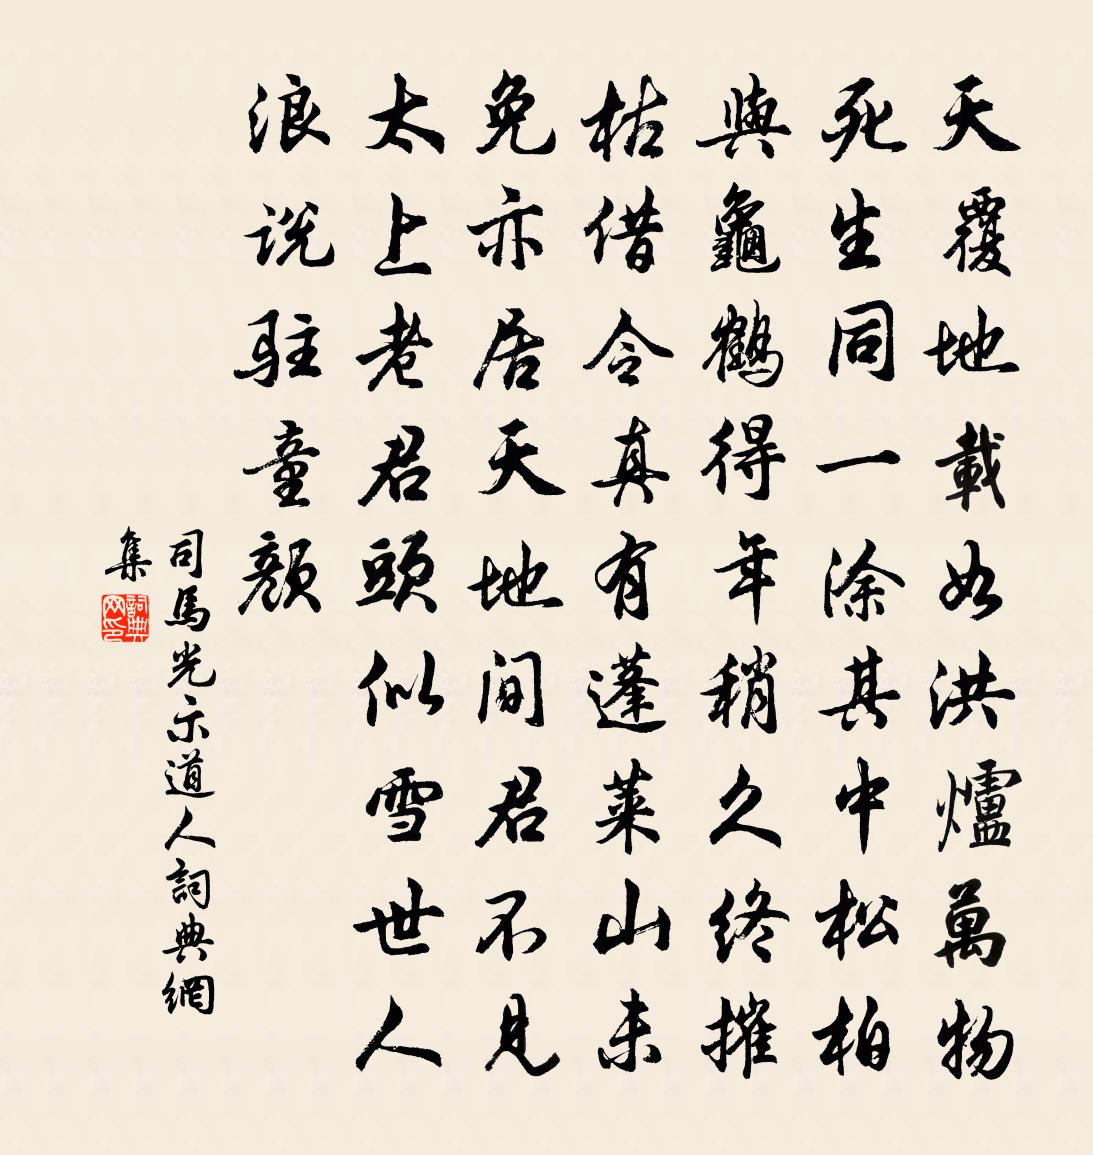 天覆地載如洪爐萬物
死生同一涂其中松柏
與龜鶴得年稍久終摧
枯借令真有蓬萊山未
免亦居天地間君不見
太上老君頭似雪世人
浪説駐童顏
司馬光示道人詞典網
集
詞典網印